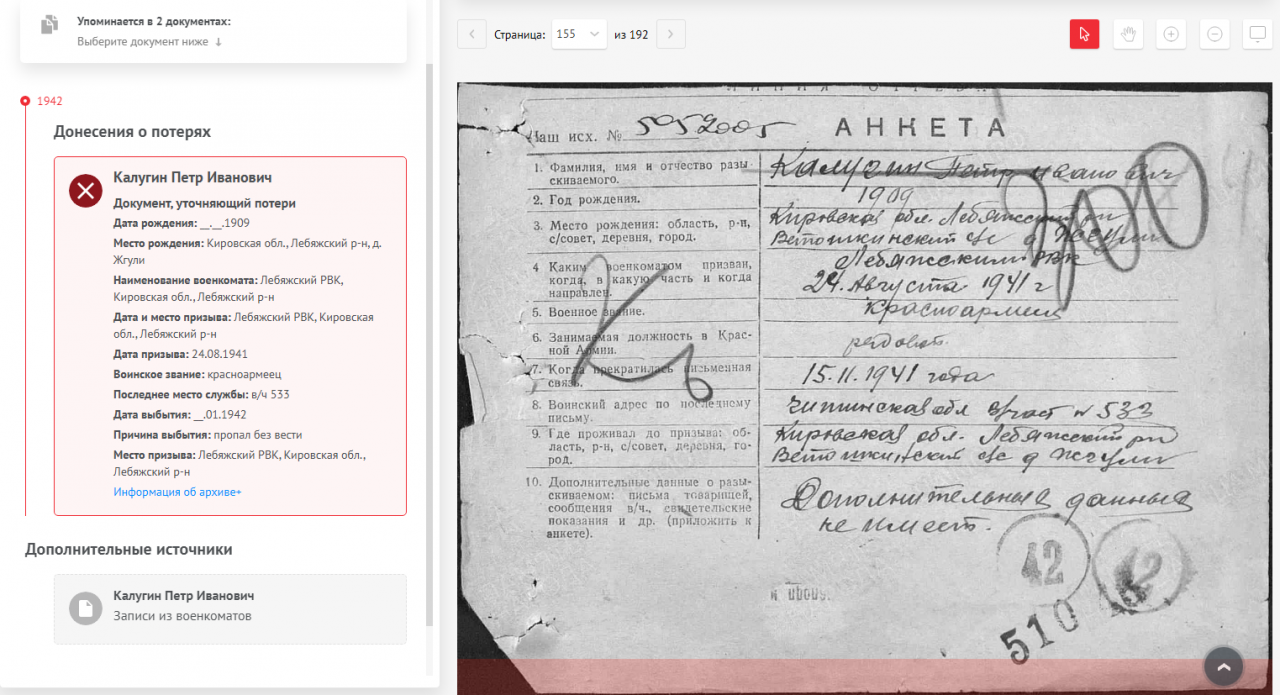 Упоминается в 2 документах:
Выберите документ ниже ↓
1942
Донесения о потерях
Калугин Петр Иванович
Документ, уточняющий потери
Дата рождения: __.__.1909
Место рождения: Кировская обл., Лебяжский р-н, д.
Жгули
Наименование военкомата: Лебяжский РВК,
Кировская обл., Лебяжский р-н
Дата и место призыва: Лебяжский РВК, Кировская
обл., Лебяжский р-н
Дата призыва: 24.08.1941
Воинское звание: красноармеец
Последнее место службы: в/ч 533
Дата выбытия: __.01.1942
Причина выбытия: пропал без вести
Место призыва: Лебяжский РВК, Кировская обл.,
Лебяжский р-н
Информация об архиве+
Дополнительные источники
Калугин Петр Иванович
Записи из военкоматов
Страница: 155 из 192
Наш исх. № АНКЕТА
1. Фамилия, имя и отчество разы-
скиваемого.
Калугин Петр Иванович
2. Год рождения.
1909
3. Место рождения: область, р-н,
с/совет, деревня, город.
Кировская обл. Лебяжский рн
Ветошкинский с/с д Жгули
4 Каким военкоматом призван,
когда, в какую часть и когда
направлен.
Лебяжским РВК
24. Августа 1941 г
5. Военное звание.
Красноармеец
6. Занимаемая должность в Крас-
ной Армии.
рядовой.
7. Когда прекратилась письменная
связь.
15.11.1941 года
8. Воинский адрес по последнему
письму.
Читинская обл в/част № 533
9. Где проживал до призыва: об-
ласть, р-н, с/совет, деревня, го-
род.
Кировская обл. Лебяжский рн
Ветошкинский с/с д Жгули
10. Дополнительные данные о разы-
скиваемом: письма товарищей,
сообщения в/ч., свидетельские
показания и др. (приложить к
анкете).
Дополнительных данных
не имеет.
42
42
510